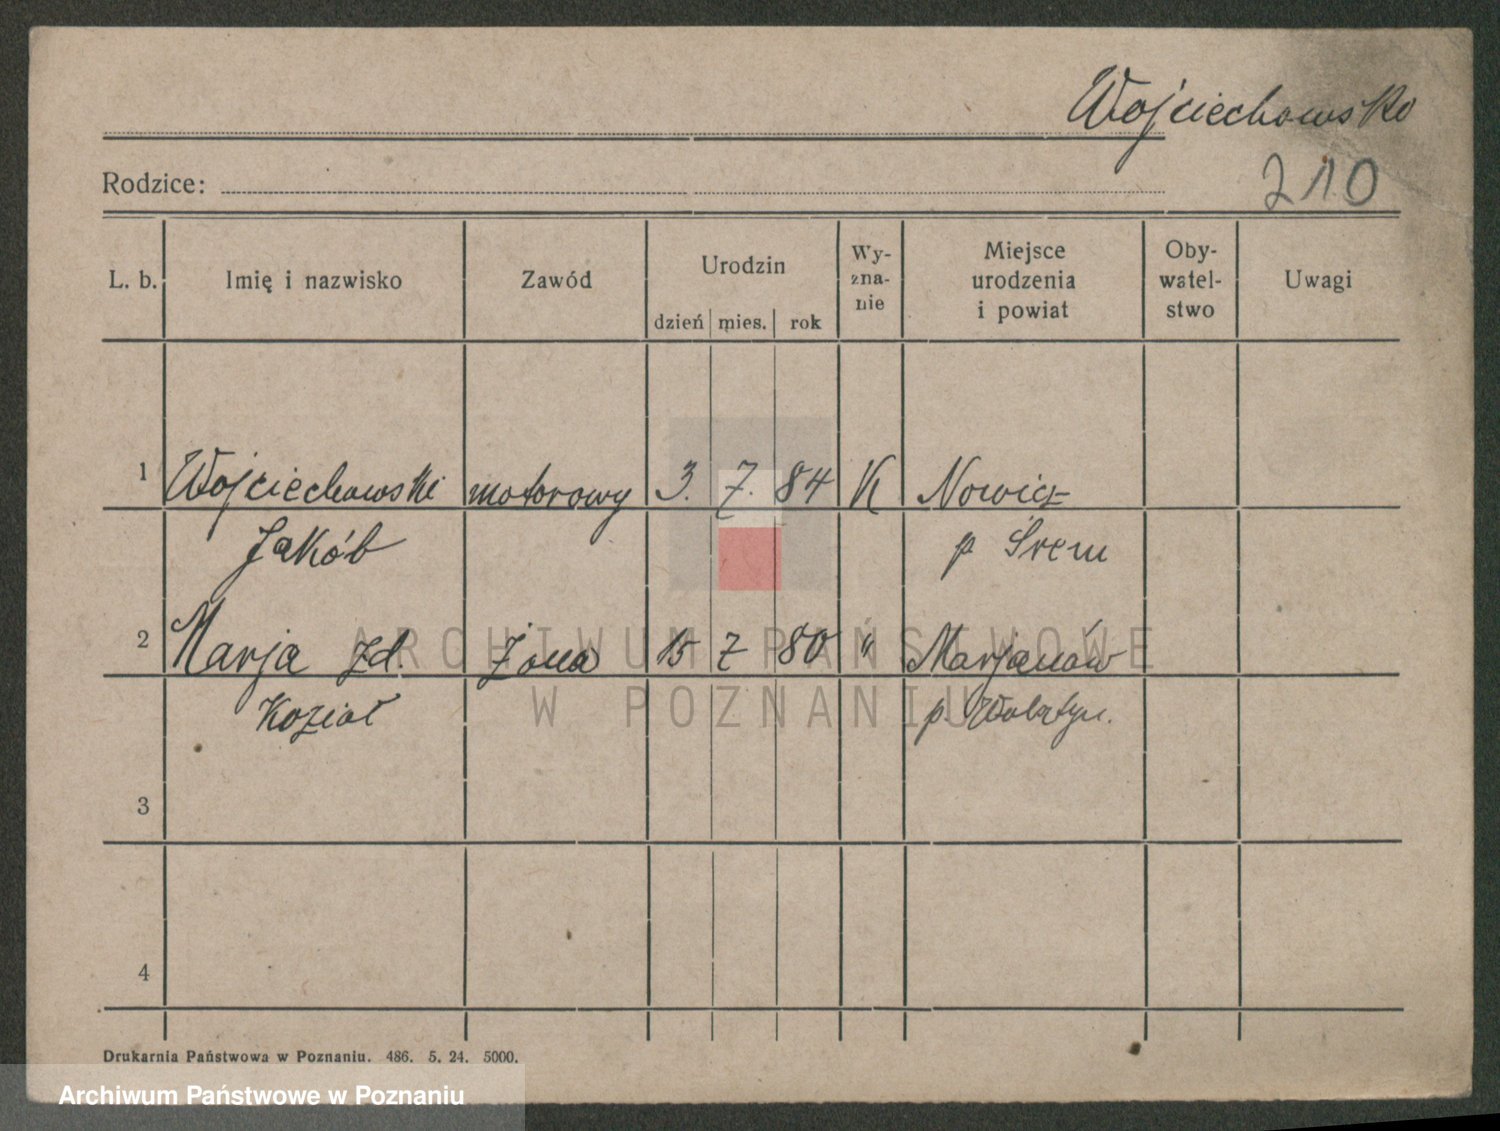 Wojciechowski
Rodzice:
210
L. b. Imię i nazwisko Zawód Urodzin dzień mies. rok Wy-zna-nie Miejsce urodzenia i powiat Oby-watel-stwo Uwagi
1 Wojciechowski motorowy 3. 7. 84 K
Jakób p Śrem
2 Marja zd. żona 15 7 80 " Marjanów
Kozioł p.
3
4
Drukarnia Państwowa w Poznaniu. 486. 5. 24. 5000.
ARCHIWUM PAŃSTWOWE
W POZNANIU
Archiwum Państwowe w Poznaniu